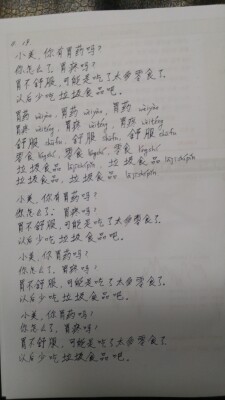 小美，你有胃药吗？
你怎么了，胃疼吗？
胃不舒服，可能是吃了太多零食了
以后少吃垃圾食品吧。
胃药 wèiyào，胃药 wèiyào，胃药 wèiyào，
胃疼 wèiténg，胃疼 wèiténg，胃疼 wèiténg
舒服 shūfu，舒服 shūfu，舒服 shūfu
零食 língshí，零食 língshí，零食 língshí
垃圾食品 lājīshípǐn，垃圾食品 lājīshípǐn
垃圾食品，垃圾食品 lājīshípǐn
小美，你有胃药吗？
你怎么了，胃疼吗？
胃不舒服，可能是吃了太多零食了
以后少吃垃圾食品吧。
小美，你有胃药吗？
你怎么了，胃疼吗？
胃不舒服，可能是吃了太多零食了
以后少吃垃圾食品吧。
小美，你有胃药吗？
你怎么了，胃疼吗？
胃不舒服，可能是吃了太多零食了
以后少吃垃圾食品吧。